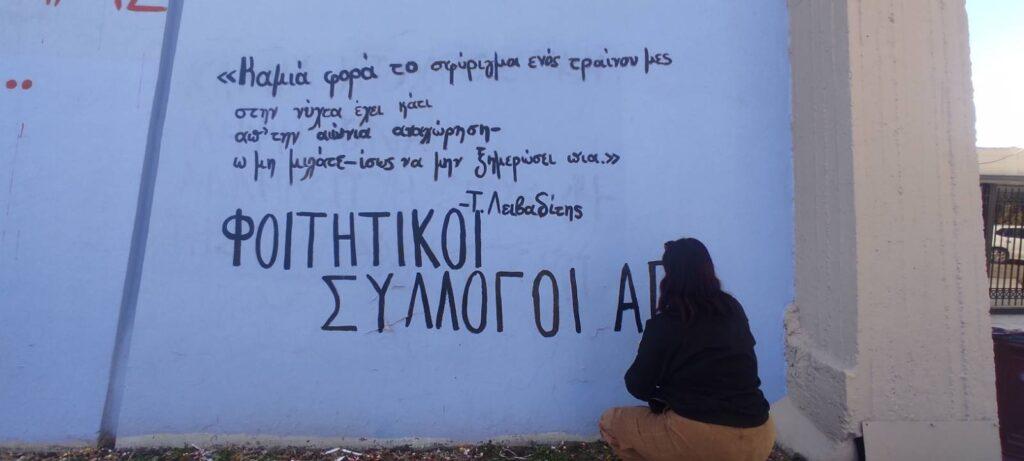 «Καμιά φορά το σφύριγμα ενός τραίνου μες
στην νύχτα έχει κάτι
απ' την αιώνια αποχώρηση-
ω μη μιλάτε-ίσως να μην ξημερώσει πια.»
-Τ. Λειβαδίτης
ΦΟΙΤΗΤΙΚΟΙ
ΣΥΛΛΟΓΟΙ